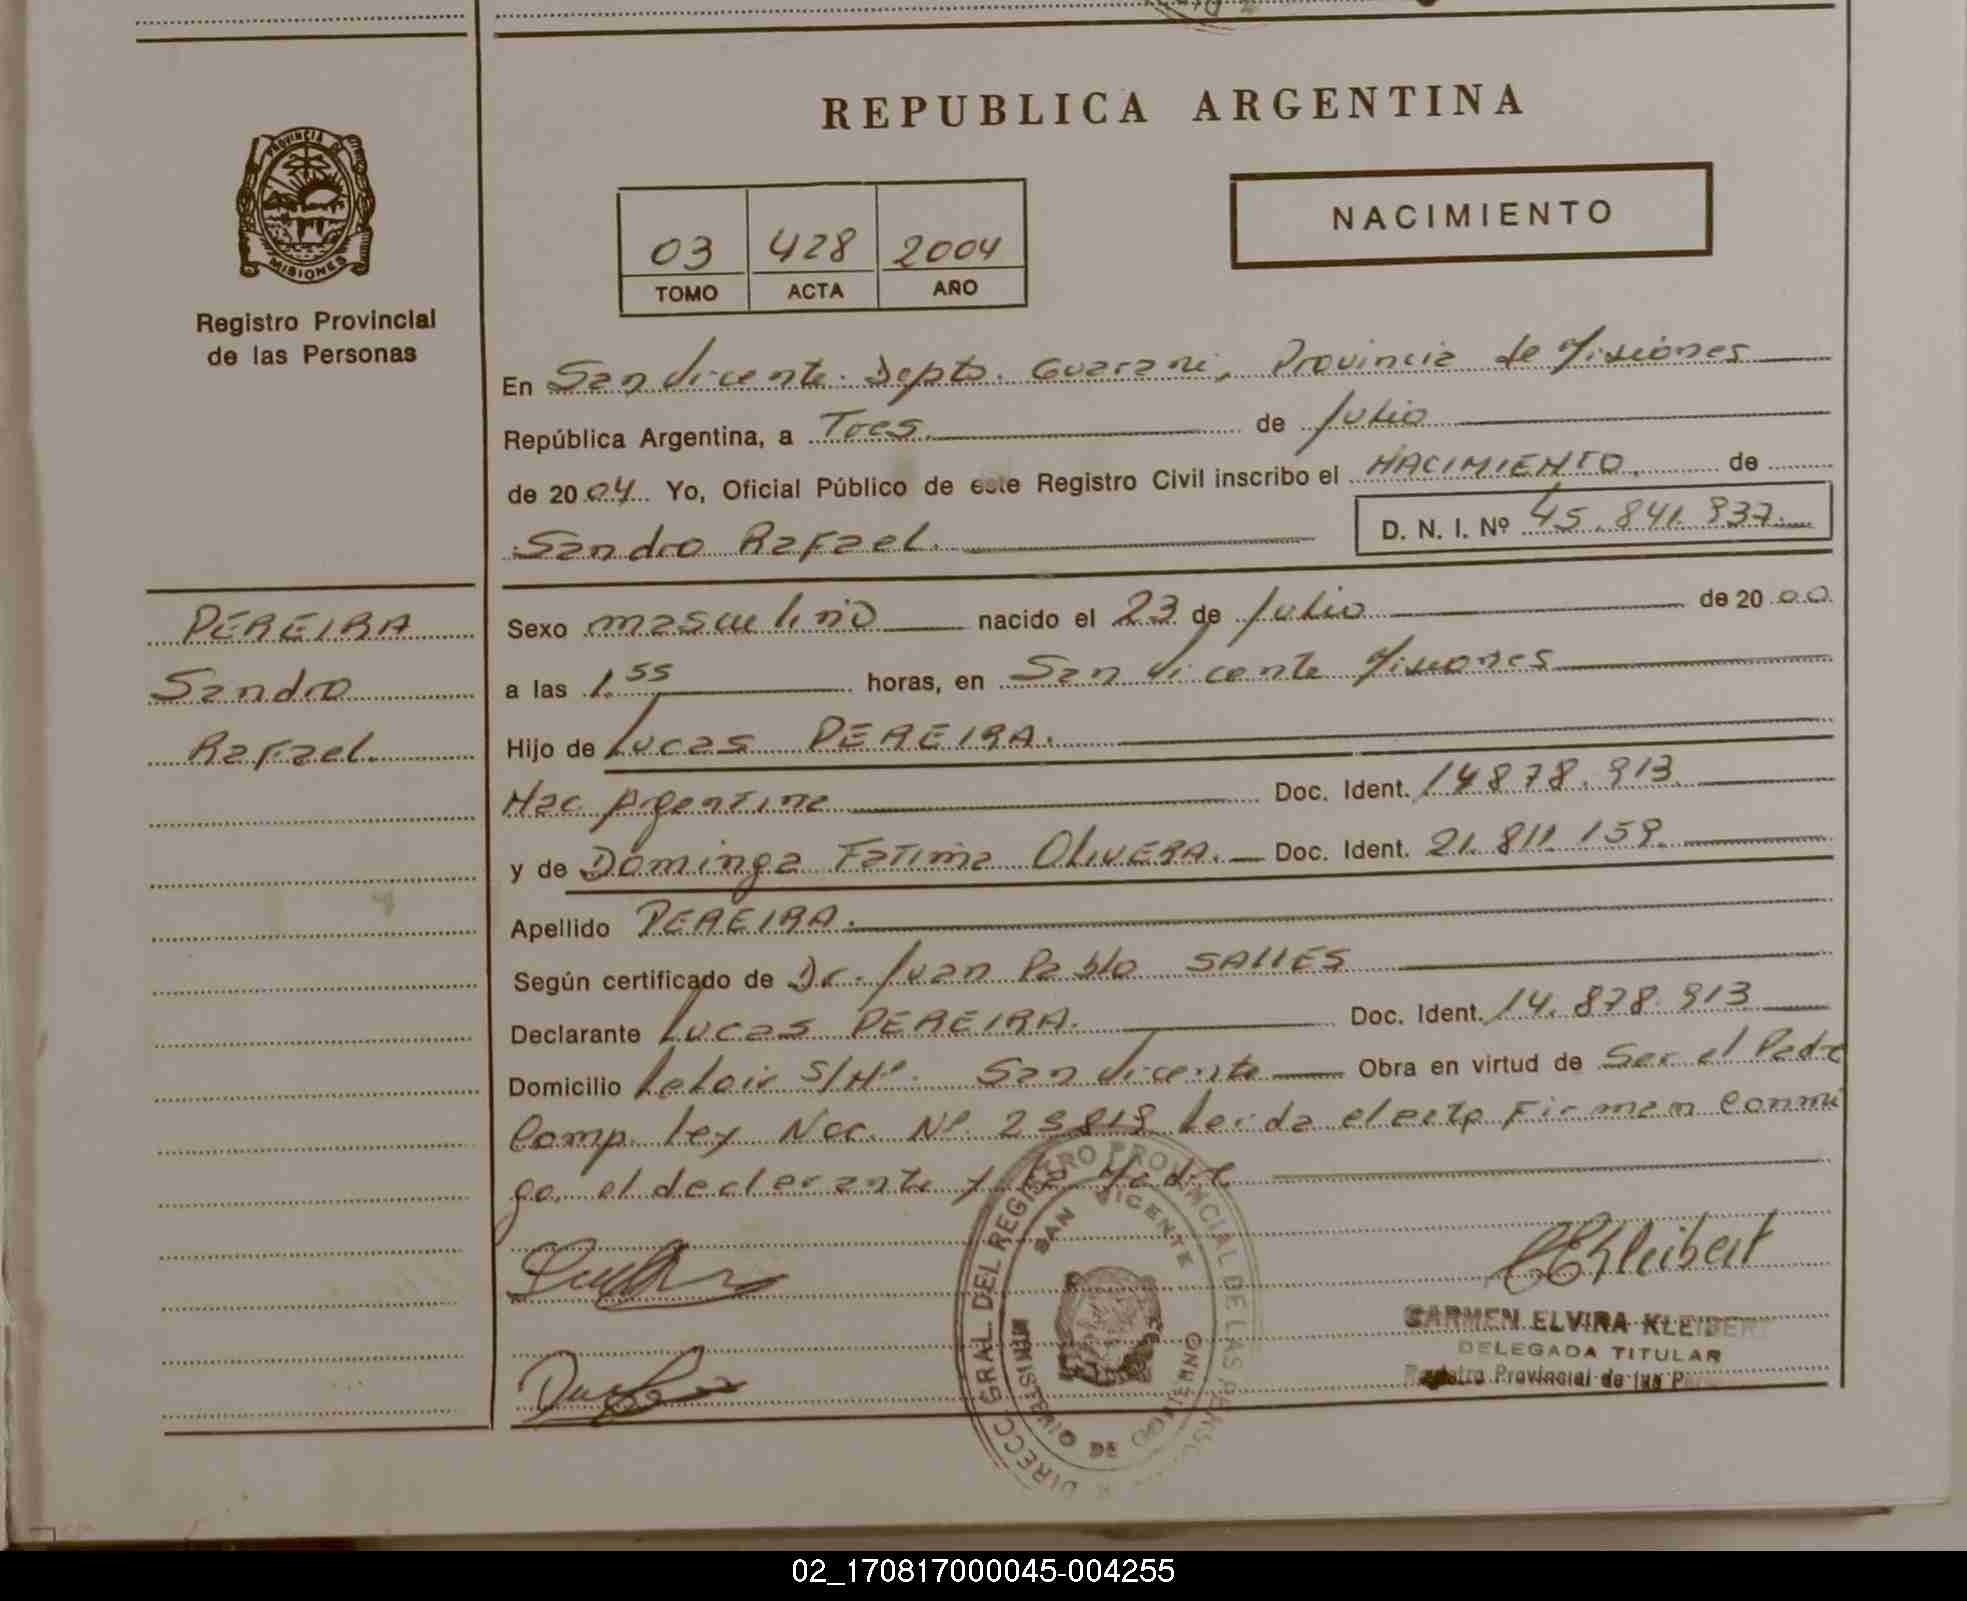 REPUBLICA ARGENTINA
PROVINCIA DE MISIONES
Registro Provincial
de las Personas
NACIMIENTO
03 428 2004
TOMO ACTA AÑO
En San Vicente. Depto. Guarani, Provincia de Misiones
República Argentina, a Tres. de Julio
de 2004 Yo, Oficial Público de este Registro Civil inscribo el NACIMIENTO. de
Sandro Rafael. D. N. I. Nº 45.841.937.
PEREIRA
Sandro
Rafael.
Sexo masculino nacido el 23 de Julio de 2000
a las 1.55 horas, en San Vicente Misiones
Hijo de Lucas PEREIRA.
Nac Argentina Doc. Ident. 14878.913.
y de Dominga Fatima OLIVERA. Doc. Ident. 21.811.159.
Apellido PEREIRA.
Según certificado de Dr. Juan Pablo SALLES
Declarante Lucas PEREIRA. Doc. Ident. 14.878.913
Domicilio Leloir S/Nº. San Vicente Obra en virtud de Ser el Padre
Comp. Ley Nac. Nº. 25819 Leida el acta Firman Conmi
go. el declarante y la Madre
CEKleibert
CARMEN ELVIRA KLEIBERT
DELEGADA TITULAR
Registro Provincial de las Per
DIRECC GRAL. DEL REGISTRO PROVINCIAL DE LAS PERSO
SAN VICENTE
MINISTERIO DE GOBIERNO
02_170817000045-004255